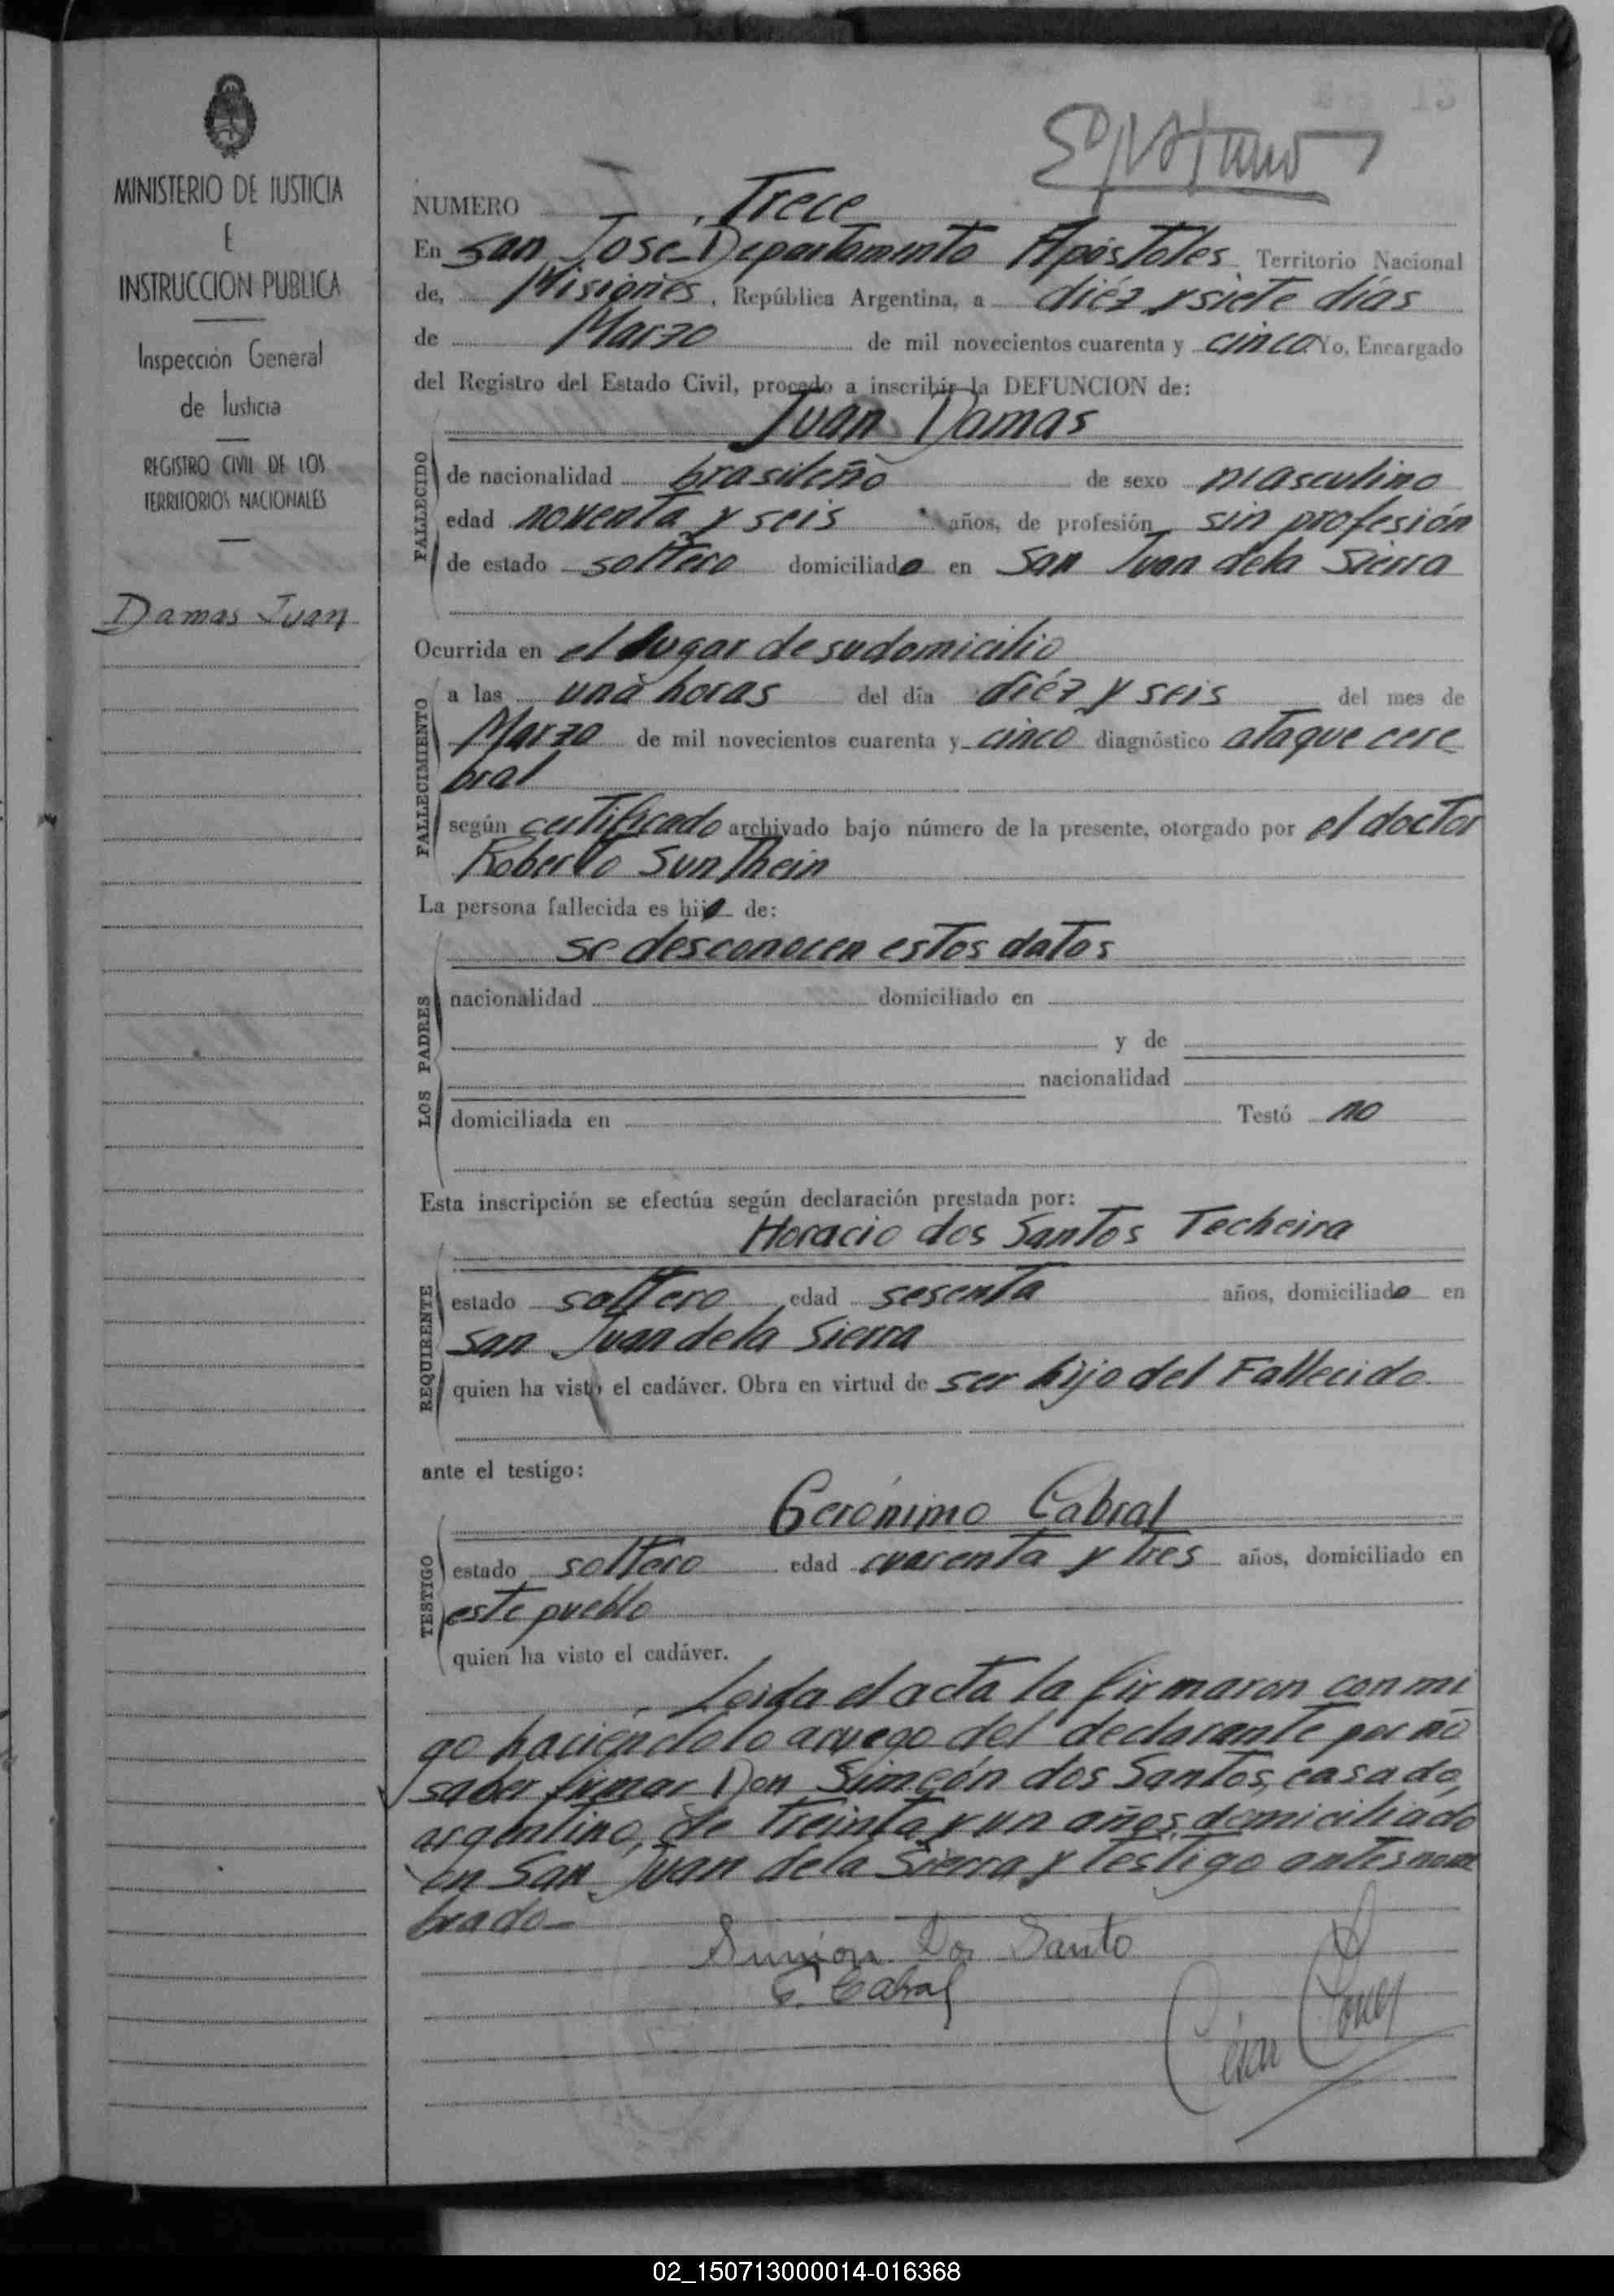 MINISTERIO DE JUSTICIA
E
INSTRUCCION PUBLICA
Inspección General
de Justicia
REGISTRO CIVIL DE LOS
TERRITORIOS NACIONALES
Damas Juan
13
NUMERO Trece
En San Jose Departamento Apóstoles Territorio Nacional
de, Misiones, República Argentina, a diéz y siete días
de Marzo de mil novecientos cuarenta y cinco Yo, Encargado
del Registro del Estado Civil, procedo a inscribir la DEFUNCION de:
Juan Damas
FALLECIDO
de nacionalidad brasileño de sexo masculino
edad noventa y seis años, de profesión sin profesión
de estado soltero domiciliado en San Juan dela Sierra
Ocurrida en el lugar de sudomicilio
FALLECIMIENTO
a las una horas del día diéz y seis del mes de
Marzo de mil novecientos cuarenta y cinco diagnóstico ataque cere
bral
según certificado archivado bajo número de la presente, otorgado por el doctor
Roberto Sunthein
La persona fallecida es hijo de:
LOS PADRES
se desconocen estos datos
nacionalidad domiciliado en
y de
nacionalidad
domiciliada en Testó no
Esta inscripción se efectúa según declaración prestada por:
Horacio dos Santos Techeira
REQUIRENTE
estado soltero edad sesenta años, domiciliado en
San Juan dela Sierra
quien ha visto el cadáver. Obra en virtud de ser hijo del Fallecido
ante el testigo:
Gerónimo Cabral
TESTIGO
estado soltero edad cuarenta y tres años, domiciliado en
este pueblo
quien ha visto el cadáver.
Leida el acta la firmaron conmi
go haciendolo aruego del declarante por no
saber firmar Don Simeón dos Santos, casado,
argentino, de treinta y un años, domiciliado
en San Juan dela Sierra y testigo antesnom
brado
Simion Dos Santo
G. Cabral
César
02_150713000014-016368